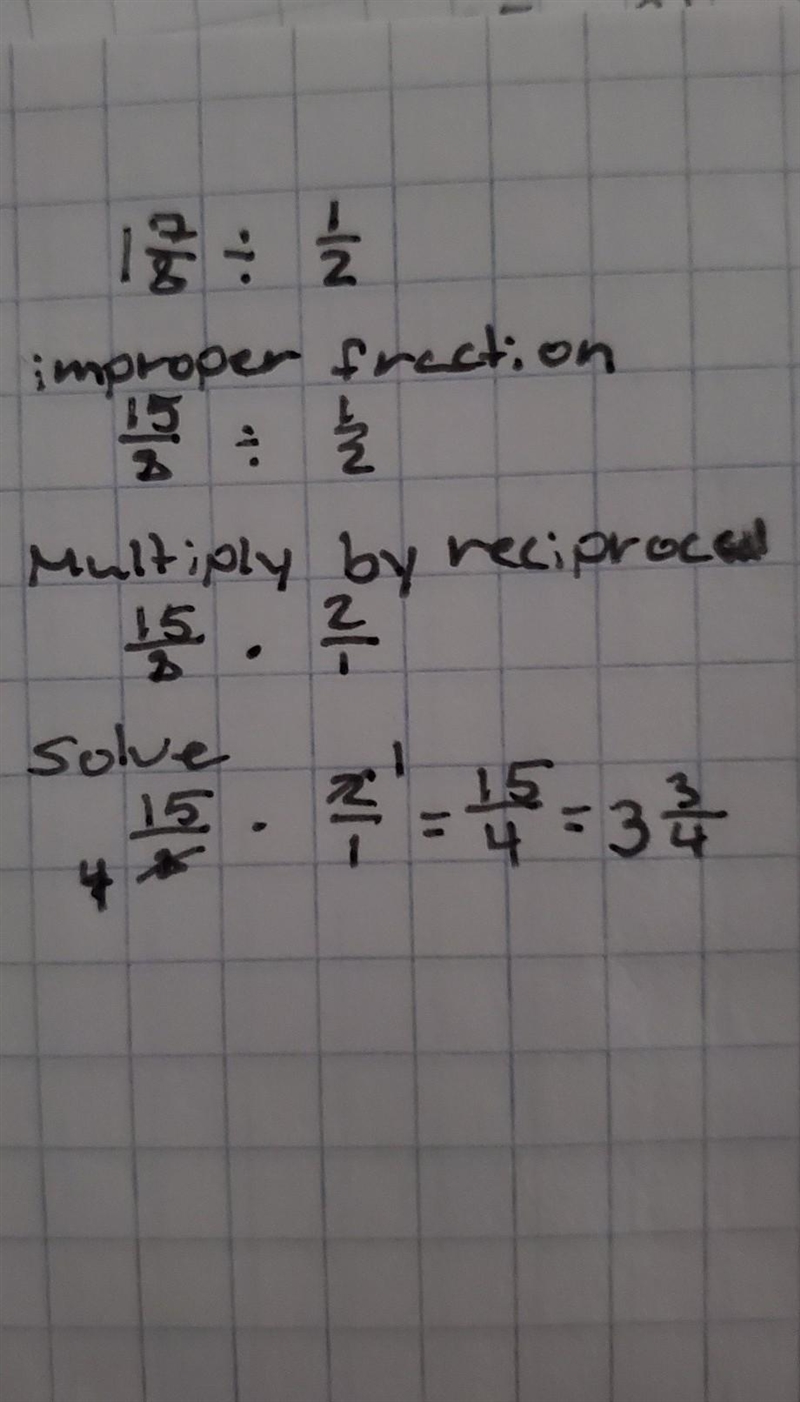 1 7/8 ÷ 1/2
improper fraction
15/8 ÷ 1/2
Multiply by reciprocal
15/8 · 2/1
Solve
4 15/8 · 2/1 1 = 15/4 = 3 3/4